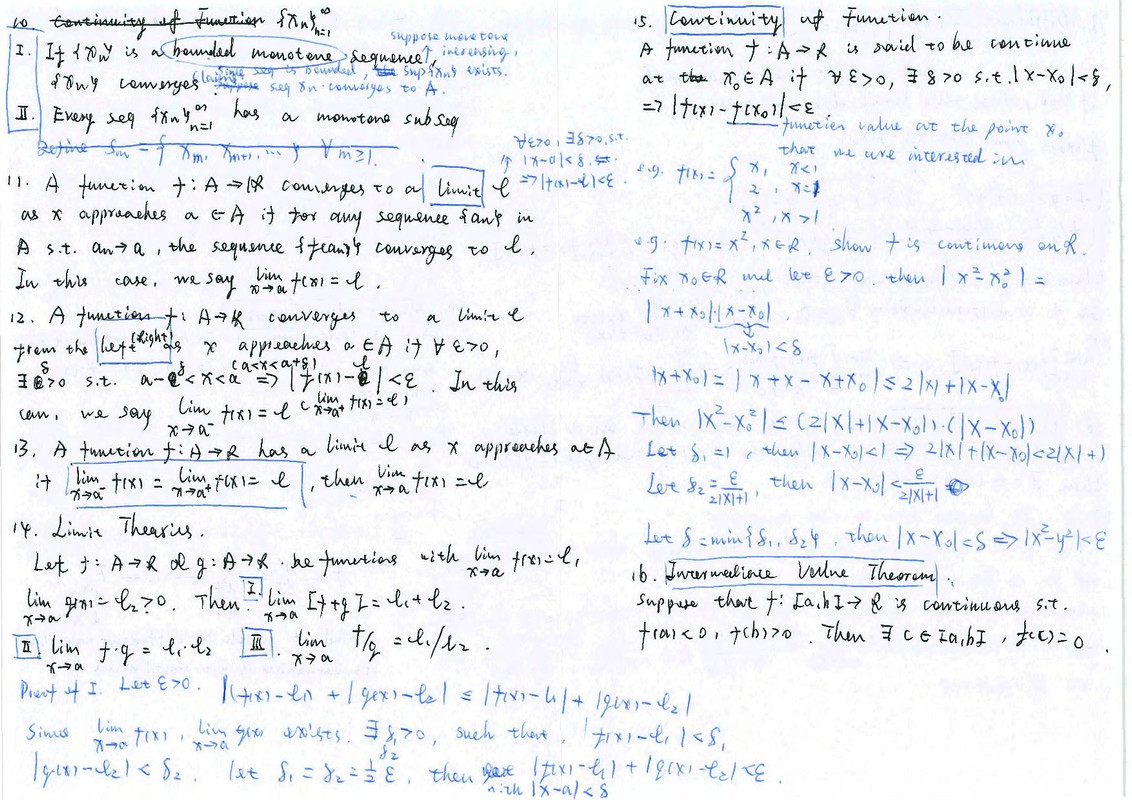 10. Continuity of Function {xn}∞n=1
I. If {xn} is a bounded monotone sequence,
suppose monotone
↑ increasing,
since seq is bounded, sup{xn} exists.
{xn} converges.
Claim: seq xn converges to A.
II. Every seq {xn}∞n=1 has a monotone subseq
Define Sm = { xm, xm+1, ... } ∀m≥1.
11. A function f: A→ℝ converges to a limit ℓ
∀ε>0, ∃δ>0, s.t.
|x-a|<δ,
=> |f(x)-ℓ|<ε
as x approaches a ∈ A if for any sequence {an} in
A s.t. an→a, the sequence {f(an)} converges to ℓ.
In this case, we say lim x→a f(x) = ℓ.
12. A function f: A→ℝ converges to a limit ℓ
from the left (right) as x approaches a∈A if ∀ε>0,
(a<x<a+δ)
∃ δ>0 s.t. a-δ<x<a => |f(x)-ℓ|<ε. In this
case, we say lim x→a⁻ f(x) = ℓ (lim x→a⁺ f(x)=ℓ)
13. A function f: A→ℝ has a limit ℓ as x approaches a∈A
if lim x→a⁻ f(x) = lim x→a⁺ f(x) = ℓ, then lim x→a f(x) = ℓ
14. Limit Theories.
Let f: A→ℝ & g: A→ℝ be functions with lim x→a f(x) = ℓ1
lim x→a g(x) = ℓ2 > 0. Then I. lim x→a [f+g] = ℓ1+ℓ2.
II. lim x→a f·g = ℓ1·ℓ2 III. lim x→a f/g = ℓ1/ℓ2.
Proof of I. Let ε>0. |(f(x)-ℓ1) + (g(x)-ℓ2| ≤ |f(x)-ℓ1| + |g(x)-ℓ2|
Since lim x→a f(x), lim x→a g(x) exists. ∃ δ1>0, such that, |f(x)-ℓ1|<δ1
δ2
|g(x)-ℓ2| < δ2. let δ1 = δ2 = ½ε, then |f(x)-ℓ1| + |g(x)-ℓ2| <ε.
with |x-a|<δ
15. Continuity of Function.
A function f: A→ℝ is said to be continue
at x0∈A if ∀ε>0, ∃δ>0 s.t. |x-x0|<δ,
=> |f(x)-f(x0)|<ε.
function value at the point x0
that we are interested in
e.g. f(x) = { x, x<1
2, x=1
x², x>1
e.g. f(x)=x², x∈ℝ. show f is continuous on ℝ.
Fix x0∈ℝ and let ε>0, then |x²-x0²| =
|x+x0||x-x0|.
|x-x0|<δ
|x+x0| = |x+x-x+x0| ≤ 2|x|+|x-x0|
Then |x²-x0²| ≤ (2|x|+|x-x0|)·(|x-x0|)
Let δ1=1, then |x-x0|<1 => 2|x|+|x-x0|<2|x|+1
Let δ2 = ε/2|x|+1, then |x-x0|<ε/2|x|+1
Let δ=min{δ1, δ2}, then |x-x0|<δ => |x²-y²|<ε
16. Intermediate Value Theorem.
Suppose that f: [a,b]→ℝ is continuous s.t.
f(a)<0, f(b)>0. Then ∃ c∈[a,b], f(c)=0.